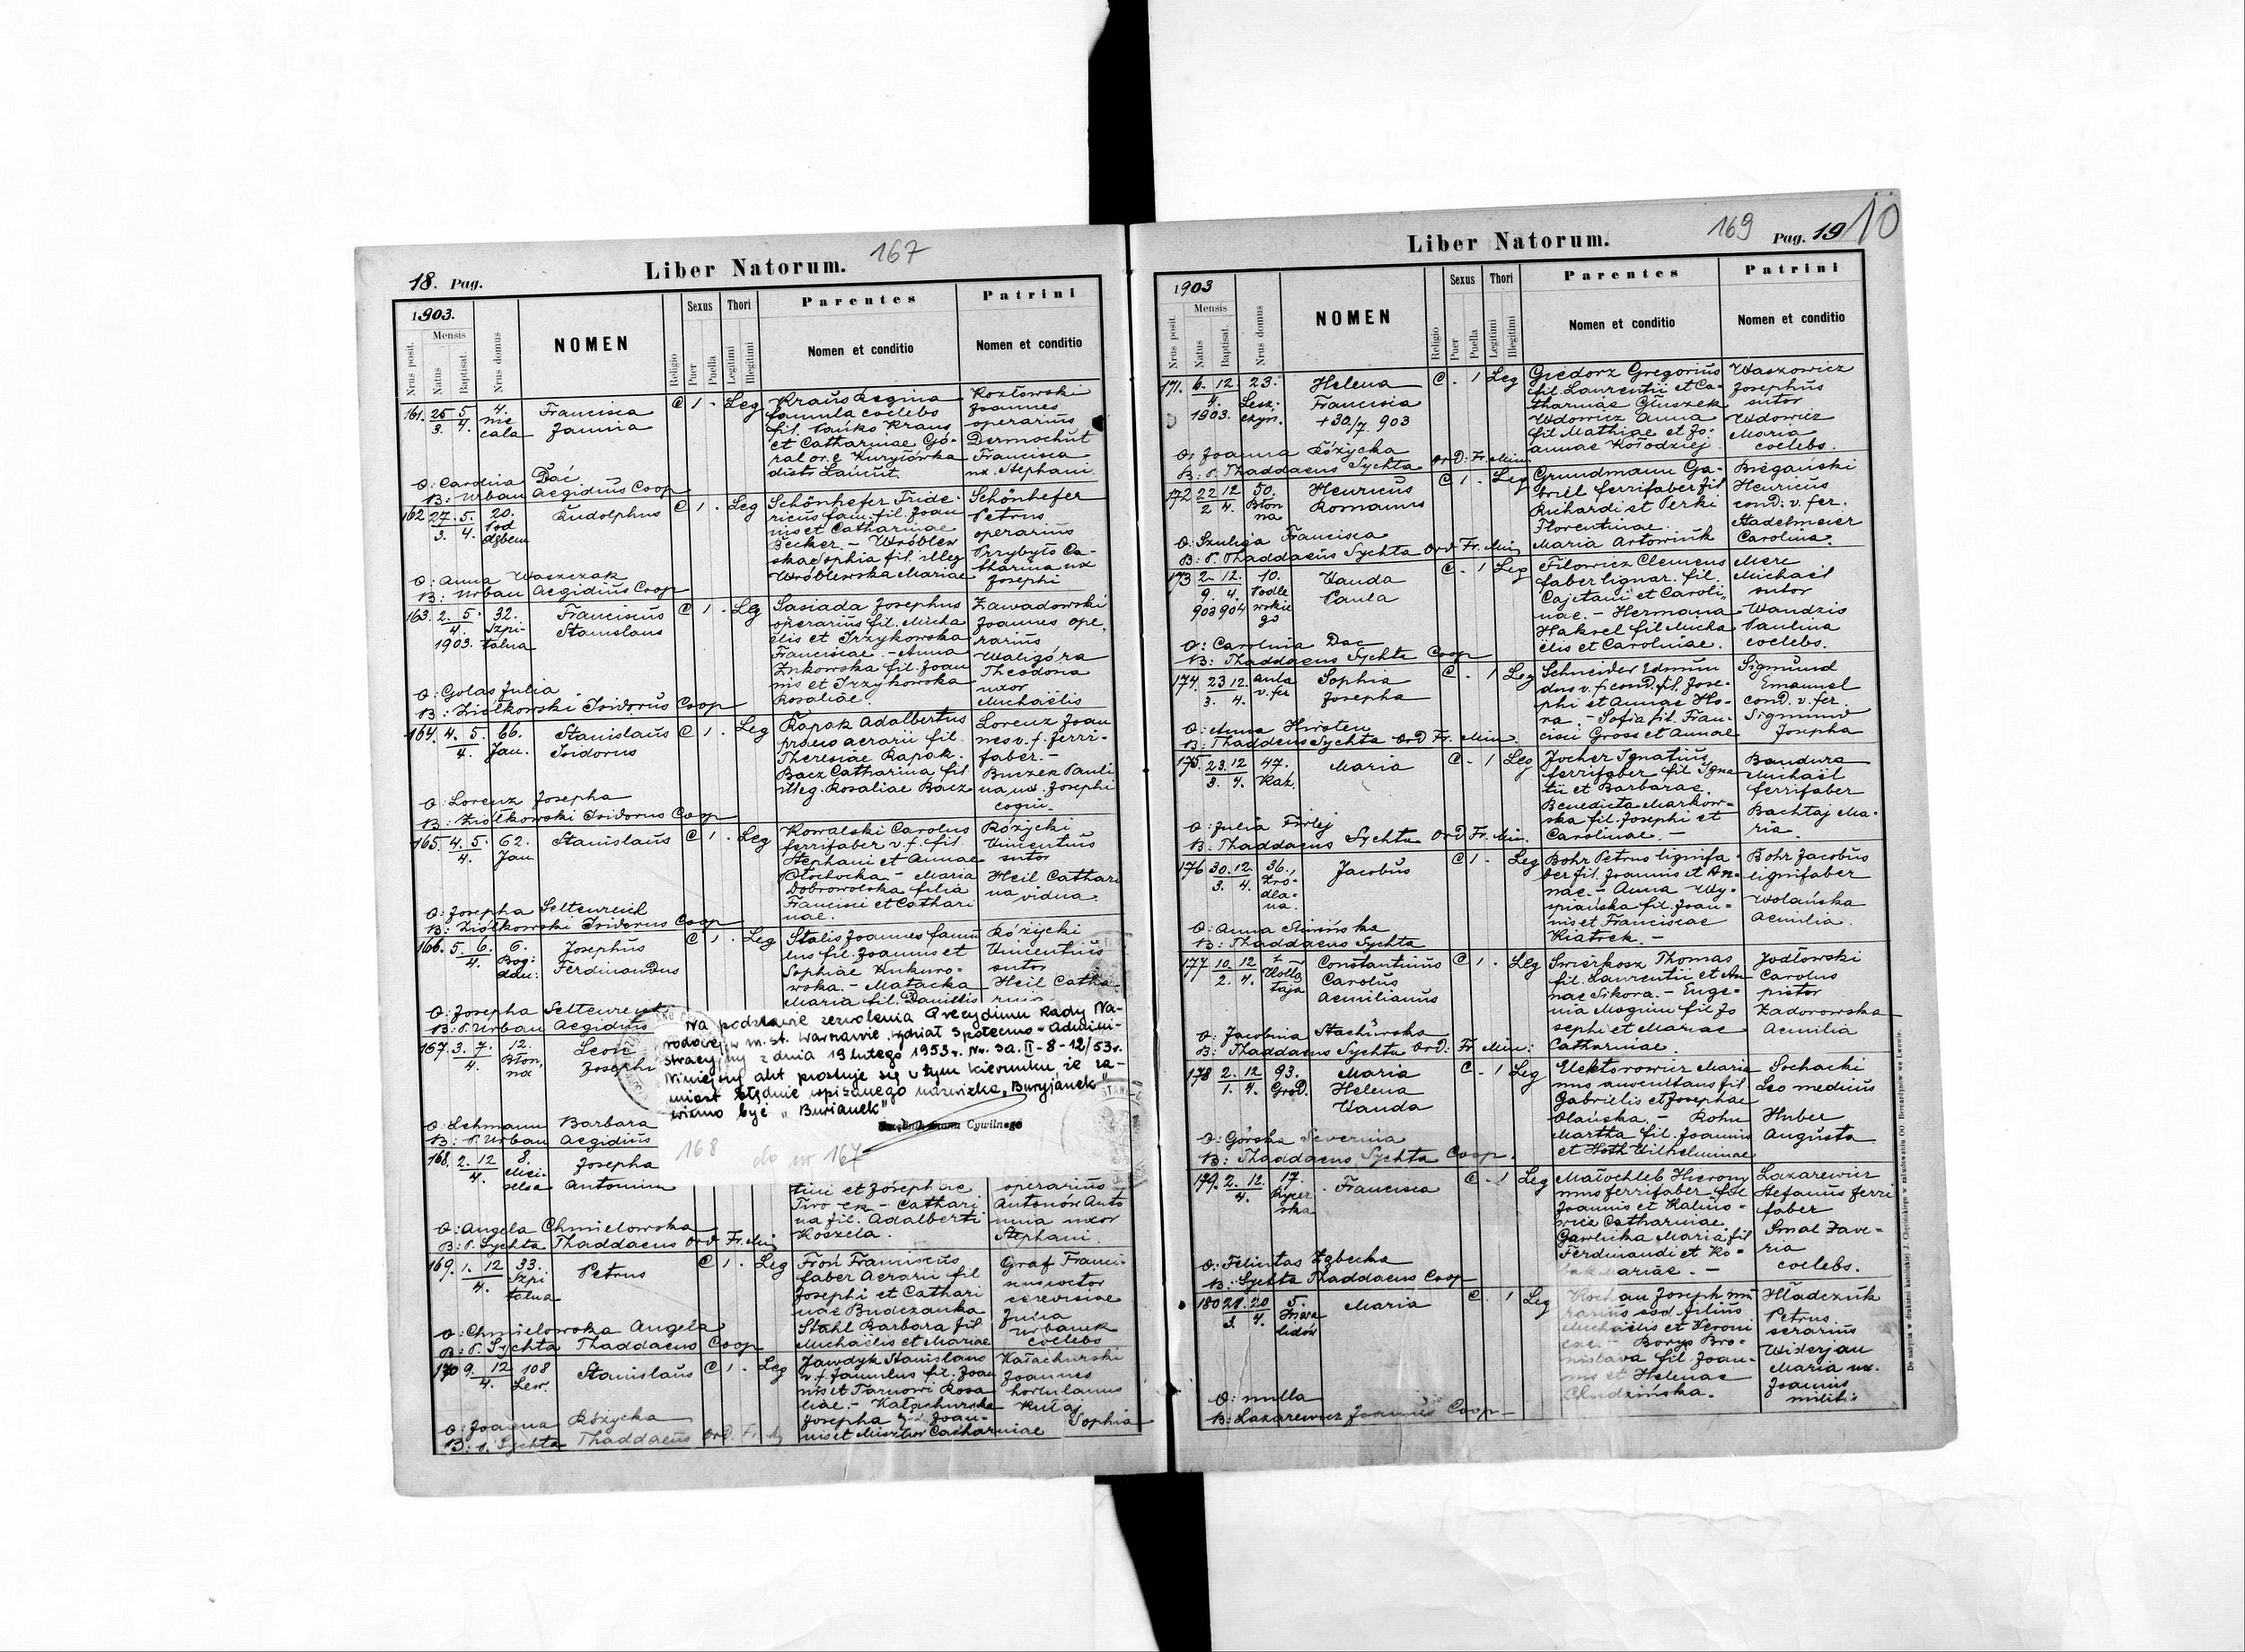 18. Pag.
Liber Natorum.
167
1903.
Nrus posit.
Mensis
Natus
Baptisat.
Nrus domus
NOMEN
Religio
Sexus
Puer
Puella
Thori
Legitimi
Illegitimi
Parentes
Nomen et conditio
Patrini
Nomen et conditio
161. 25/3. 5/4. 4.
Francisca
Janina
C 1 - Leg
Kraus Regina
famula coelebs
fil. Kraus
et Catharinae Gó-
ral or. e Kuryłówka
distr Łańcut
Kozłowski
Joannes
operarius
Dermochut
Francisca
ux. Stephani
O: Carolina Dać.
B: Urban Aegidius Coop
162 27./3. 5./4. 20.
Pod
dębem
Rudolphus
C 1 . Leg
Schönhefer Fride-
ricus fam. fil. Joan
nis et Catharinae
Becker. - Wróblew
ska Sophia fil illeg
Wróblewska Mariae
Schönhefer
Petrus
operarius
Przybyło Ca-
tharina ux
Josephi
O: Anna Waszczak
B: Urban Aegidius Coop
163. 2. 5./4. 1903. 32.
Szpi-
talna
Franciscus
Stanislaus
C 1 . Leg
Sasiada Josephus
operarius fil. Micha
elis et Irzykowska
Franciscae. - Anna
Żukowska fil. Joan
nis et Irzykowska
Rosaliae.
Zawadowski
Joannes ope
rarius
Waligóra
Theodona
uxor
Michaëlis
O: Golas Julia
B: Ziółkowski Isidorus Coop
164. 4. 5./4. 66.
Jan.
Stanislaus
Isidorus
C 1 . Leg
Rapak Adalbertus
aerarii fil.
Theresiae Rapak.
Bacz Catharina fil
illeg. Rosaliae Bacz
Lorenz Joan
nes v. f. ferri-
faber. -
Buczek Pauli
na ux. Josephi
coqui.
O: Lorenz Josepha
B: Ziółkowski Isidorus Coop
165. 4. 5./4. 62.
Jan
Stanislaus
C 1 . Leg
Kowalski Carolus
ferrifaber v. f. fil.
Stephani et Annae
Błochocka - Maria
Dobrowolska filia
Francisci et Cathari
nae.
Różycki
Vincentius
sutor
Heil Cathari
na vidua.
O: Josepha Seltenreich
B: Ziółkowski Isidorus Coop
166. 5. 6./4. 6.
Bog:
dan:
Josephus
Ferdinandus
C 1 . Leg
Stalis Joannes famu
lus fil. Joannis et
Sophiae Kukuro-
wska. - Matacka
Maria fil. Daniëlis
Różycki
Vincentius
sutor
Heil Catha-
O: Josepha Seltenreich
B: P. Urban Aegidius
167. 3. 7./4. 12.
Błon,
na
Leon
Josephi
O: Lehmann Barbara
B: P. Urban Aegidius
Na podstawie zezwolenia Prezydium Rady Na-
rodowej w m. st. Warszawie Wydział Społeczno-Admini-
stracyjny z dnia 19 lutego 1953 r. Nr. Sa. II-8-12/53r.
Niniejszy akt prostuje się w tym kierunku, że za-
miast błędnie wpisanego nazwiska „Buryjanek"
winno być „Burianek"
Cywilnego
168 do nr 167
168. 2. 12/4. 8.
Josepha
Antonina
tini et Josephae
Cathari
na fil. Adalberti
Koszela.
operarius
Antonów Anto
nina uxor
Stephani.
O: Angela Chmielowska
B: P. Sychta Thaddaeus Ord Fr. Min
169. 1. 12/4. 33.
Szpi
talna
Petrus
C 1 . Leg
Froń Franciscus
faber Aerarii fil
Josephi et Cathari
nae Budczanka
Stahl Barbara fil
Michaëlis et Mariae
Graf Franci-
cerevisiae
Julia
Urbanek
coelebs
O: Chmielowska Angela
B: P. Sychta Thaddaeus Coop
170 9. 12/4. 108
Lew.
Stanislaus
C 1 . Leg
Jawdyk Stanislaus
v. f. famulus fil. Joan
nis et Tarnowi Rosa
liae. - Kałachurska
Josepha fil. Joan-
nis et Catharinae
Kałachurski
Joannes
hortulanus
Kułaj
Sophia
O: Joanna Różycka
B: P. Sychta Thaddaeus Ord. Fr. M
Liber Natorum.
169
Pag. 19
10
1903
Nrus posit.
Mensis
Natus
Baptisat.
Nrus domus
NOMEN
Religio
Sexus
Puer
Puella
Thori
Legitimi
Illegitimi
Parentes
Nomen et conditio
Patrini
Nomen et conditio
171. 6. 12./4. 1903. 23.
Lesz-
czyń.
Helena
Francisca
+ 30/7. 903
C . 1 Leg
Giedorz Gregorius
fil. Laurentii et Ca-
tharinae Głuszek
Wdowicz Anna
fil Mathiae et Jo-
annae Kołodziej
Waszowicz
Josephus
sutor
Wdowicz
Maria
coelebs.
O: Joanna Różycka
B: P. Thaddaeus Sychta Ord: Fr. Min.
172 22/2 12/4. 50.
Błon
na
Henricus
Romanus
C 1 . Leg
Grundmann Ga-
briel ferrifaber fil
Richardi et Perki
Florentinae.
Maria Artowiuk
Biegański
Henricus
cond: v. fer.
Stadelmeier
Carolina.
O: Szuliga Francisca
B: P. Thaddaeus Sychta Ord Fr. Min
173 2./9. 903 12./4. 904 10.
Podle
wskie
go
Wanda
Paula
C . 1 Leg
Filowicz Clemens
faber lignar. fil.
Cajetani et Caroli,
nae. - Hermana
Haksel fil Micha
elis et Carolinae.
Merc
Michaël
sutor
Wandzio
Paulina
coelebs.
O: Carolina Dac
B: Thaddaeus Sychta Coop
174. 23/3. 12./4. aula
v. fer
Sophia
Josepha
C . 1 Leg
Schneider Edmun
dus v. f. cond. fil. Jose-
phi et Annae Ho-
ra. - Sofia fil. Fran-
cisci Gross et Annae
Sigmund
Emanuel
cond. v. fer.
Sigmund
Josepha
O: Anna Hirsten
B: Thaddeus Sychta Ord Fr. Min.
175. 23./3. 12/4. 47.
Kak.
Maria
C . 1 Leg
Jocher Ignatius
ferrifaber fil Igna
tii et Barbarae.
Benedicta Markow-
ska fil. Josephi et
Carolinae. -
Bandura
Michaël
ferrifaber
Bachtaj Ma-
ria.
O: Julia Firlej
B: Thaddaeus Sychta Ord Fr. Min.
176 30./3. 12./4. 36.,
Źró-
dla-
na.
Jacobus
C 1 . Leg
Bohr Petrus lignifa-
ber fil. Joannis et An-
nae. - Anna Wy-
spiańska fil. Joan-
nis et Franciscae
Kiatrek. -
Bohr Jacobus
lignifaber
Wolańska
Aemilia.
O: Anna
B: Thaddaeus Sychta
177 10./2. 12/4.
Kołłą
taja
Constantinus
Carolus
Aemilianus
C 1 . Leg
Świerkosz Thomas
fil. Laurentii et An
nae Sikora. - Euge-
nia Magium fil Jo
sephi et Mariae
Catharinae.
Jodłowski
Carolus
pictor
Zadorowska
Aemilia
O: Jacobina Stachurska
B: Thaddaeus Sychta Ord: Fr. Min:
178 2./1. 12/4. 93.
Grod.
Maria
Helena
Wanda
C . 1 Leg
Elektorowicz Maria
nus auscultans fil
Gabrielis et Josephae
Olańska. - Rohn
Martha fil. Joannis
et Hoth Wilhelminae
Sochacki
Leo medicus
Huber
Augusta
O: Górska Severina
B: Thaddaeus Sychta Coop.
179. 2. 12./4. 17.
Francisca
C . 1 Leg
Małochleb Hierony
mus ferrifaber fil
Joannis et Kalino-
wicz Catharinae.
Gawlicka Maria fil
Ferdinandi et Ko-
Mariae. -
Lazarewicz
Stefanus ferri
faber
Smal Xave-
ria
coelebs.
O: Felicitas Zębecka
B: Sychta Thaddaeus Coop
180 28./3. 20/4. 5.
Inwa
lidów
Maria
C . 1 Leg
Joseph mu
rarius sod. filius
Michaëlis et Veroni
cae. - Borys Bro-
nislava fil. Joan-
nis et Helenae
Chudzińska.
Hładczuk
Petrus
serarius
Widerjan
Maria ux.
Joannis
militis
O: nulla
B: Lazarewicz Joannes Coop
Do nabycia w drukarni katolickiej J. Chęcińskiego w zabudowaniu OO. Bernardynów we Lwowie.